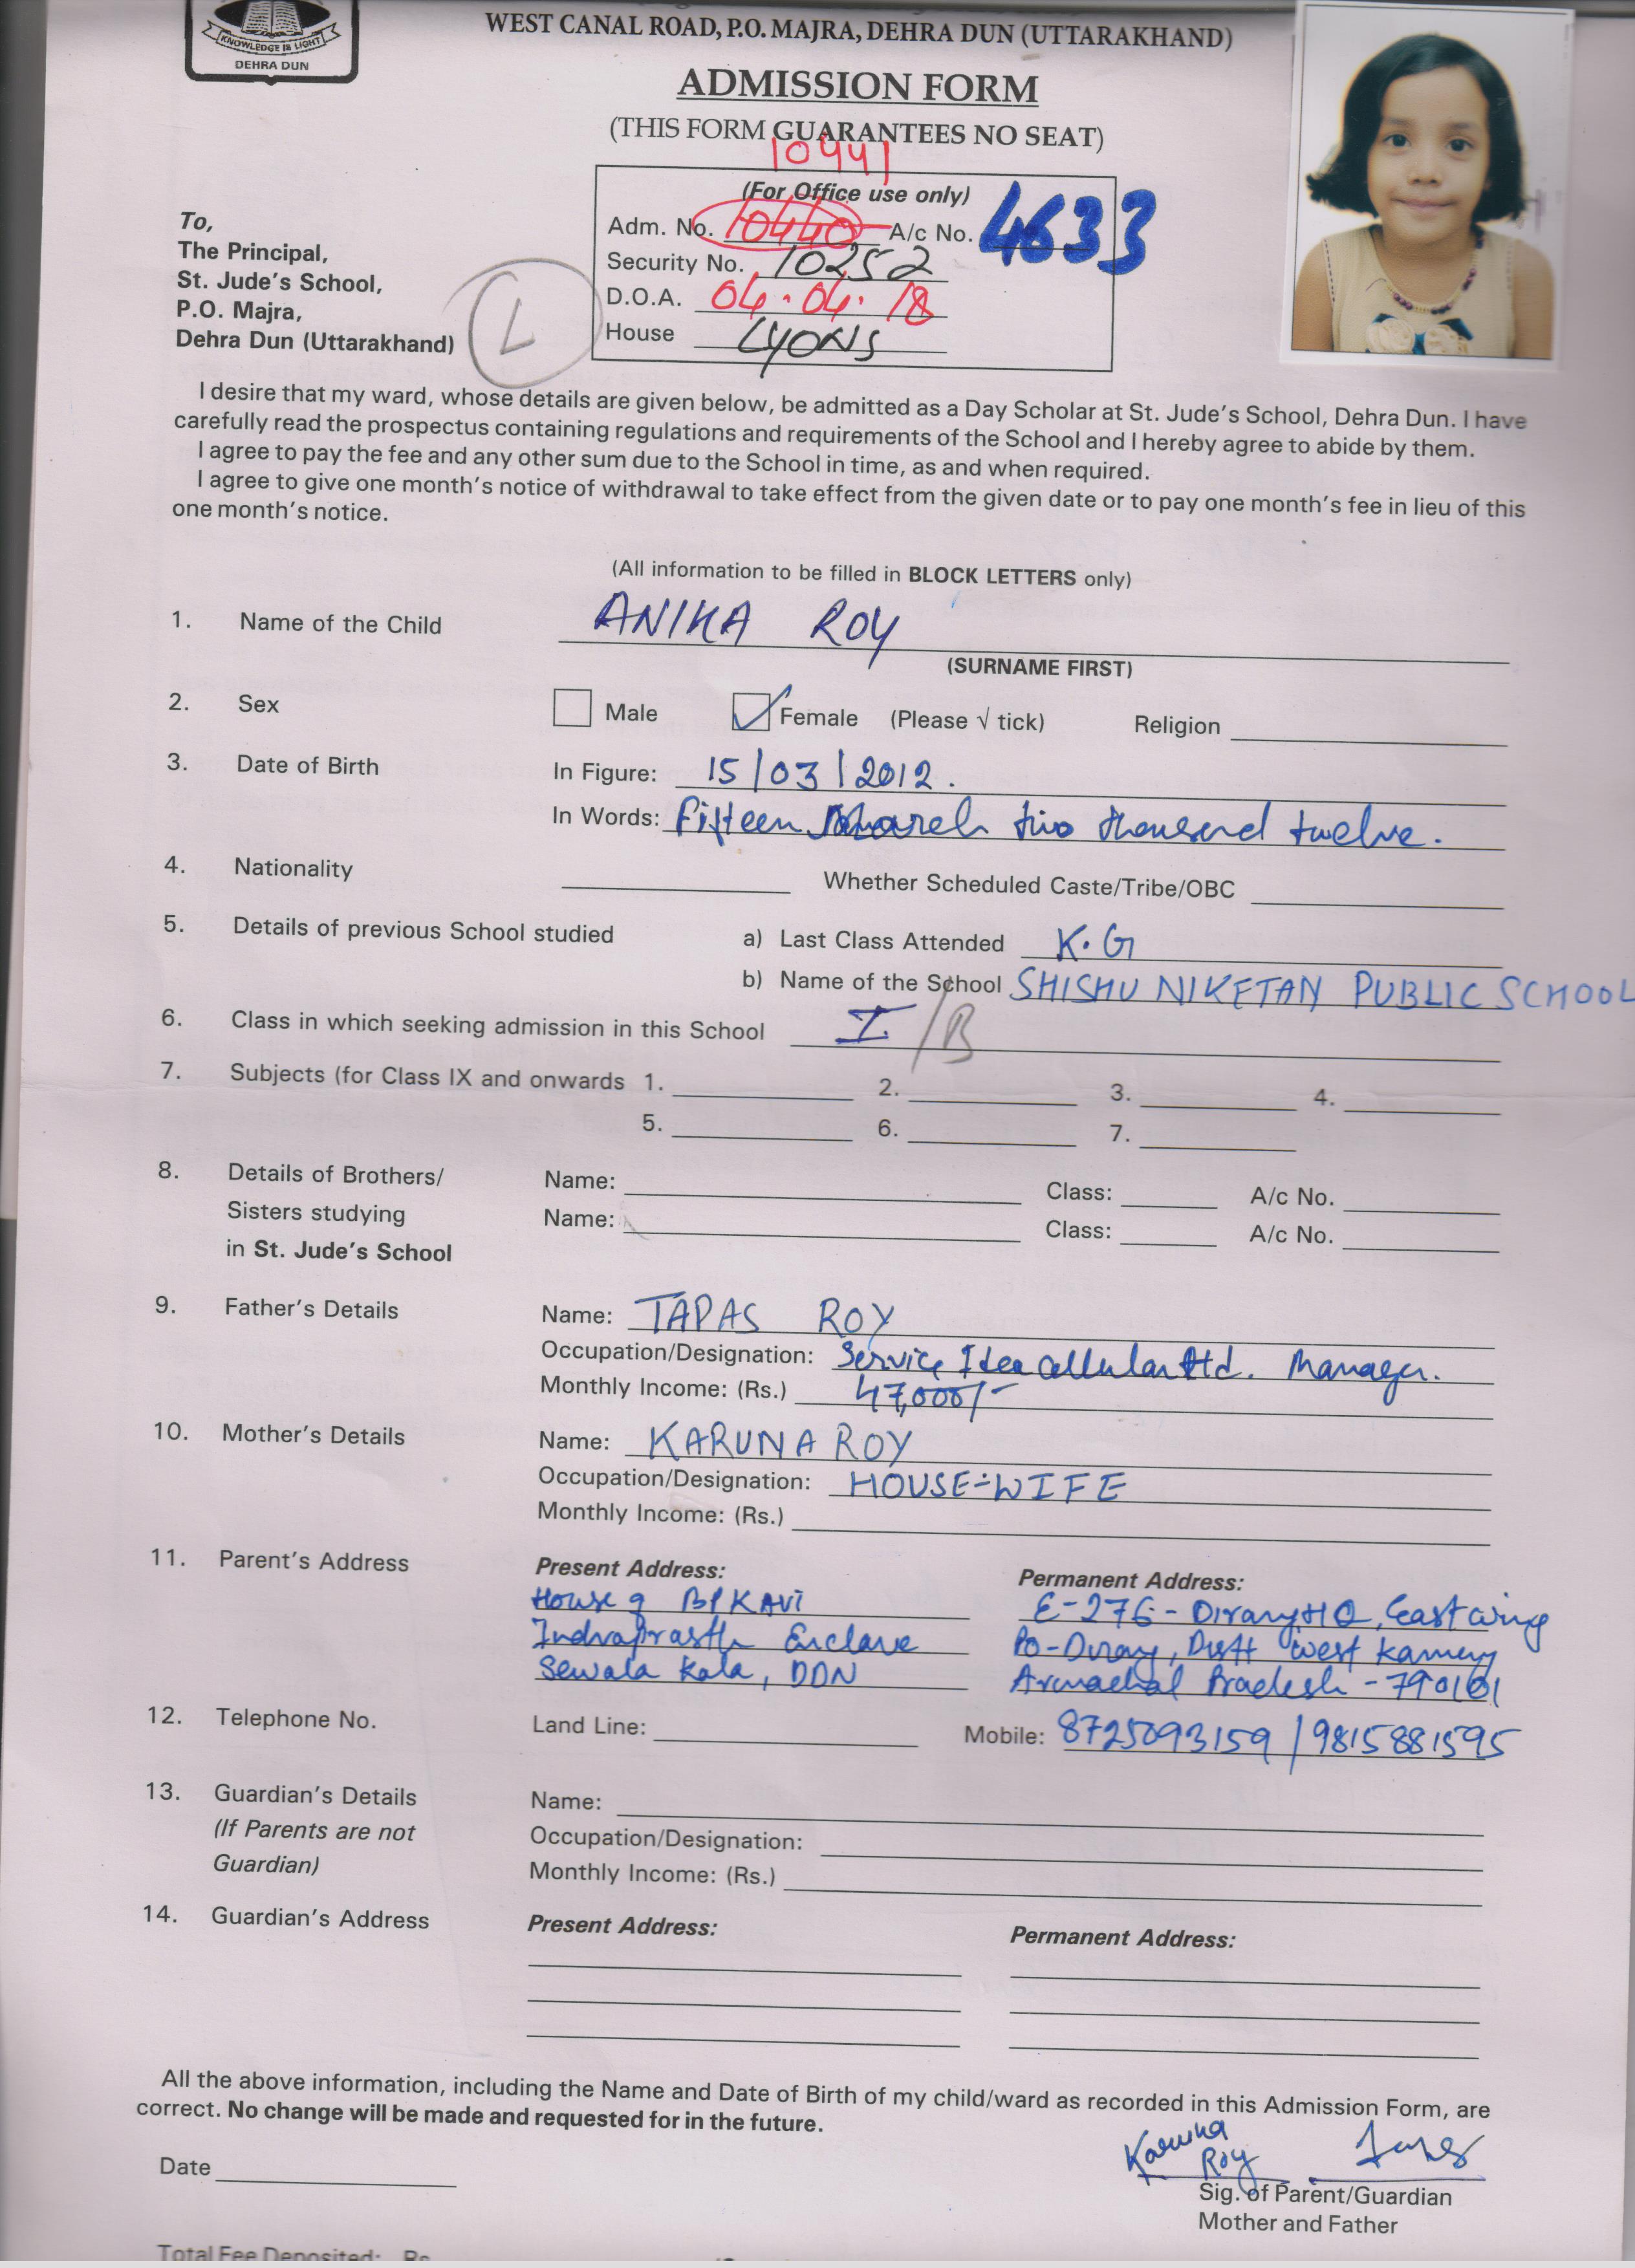 KNOWLEDGE IS LIGHT
DEHRA DUN
WEST CANAL ROAD, P.O. MAJRA, DEHRA DUN (UTTARAKHAND)
ADMISSION FORM
(THIS FORM GUARANTEES NO SEAT)
10441
(For Office use only)
Adm. No. 10440 A/c No. 4633
Security No. 10252
D.O.A. 04.04.18
House LYONS
To,
The Principal,
St. Jude's School,
P.O. Majra,
Dehra Dun (Uttarakhand)
L
I desire that my ward, whose details are given below, be admitted as a Day Scholar at St. Jude's School, Dehra Dun. I have
carefully read the prospectus containing regulations and requirements of the School and I hereby agree to abide by them.
I agree to pay the fee and any other sum due to the School in time, as and when required.
I agree to give one month's notice of withdrawal to take effect from the given date or to pay one month's fee in lieu of this
one month's notice.
(All information to be filled in BLOCK LETTERS only)
1. Name of the Child ANIKA ROY
(SURNAME FIRST)
2. Sex Male Female (Please √ tick) Religion
3. Date of Birth In Figure: 15/03/2012.
In Words: Fifteen March two thousand twelve.
4. Nationality Whether Scheduled Caste/Tribe/OBC
5. Details of previous School studied a) Last Class Attended K.G
b) Name of the School SHISHU NIKETAN PUBLIC SCHOOL
6. Class in which seeking admission in this School I/B
7. Subjects (for Class IX and onwards 1. 2. 3. 4.
5. 6. 7.
8. Details of Brothers/ Name: Class: A/c No.
Sisters studying Name: Class: A/c No.
in St. Jude's School
9. Father's Details Name: TAPAS ROY
Occupation/Designation: Service, Idea Cellular Ltd. Manager.
Monthly Income: (Rs.) 47,000/-
10. Mother's Details Name: KARUNA ROY
Occupation/Designation: HOUSE-WIFE
Monthly Income: (Rs.)
11. Parent's Address Present Address: Permanent Address:
House 9 E-276- Dirang HQ, East wing
Indraprasth Enclave PO-Dirang, Distt West Kameng
Sewala Kala, DDN Arunachal Pradesh - 790101
12. Telephone No. Land Line: Mobile: 8725093159 / 9815881595
13. Guardian's Details Name:
(If Parents are not Occupation/Designation:
Guardian) Monthly Income: (Rs.)
14. Guardian's Address Present Address: Permanent Address:
All the above information, including the Name and Date of Birth of my child/ward as recorded in this Admission Form, are
correct. No change will be made and requested for in the future.
Karuna
Roy
Date
Sig. of Parent/Guardian
Mother and Father
Total Fee Deposited: Rs